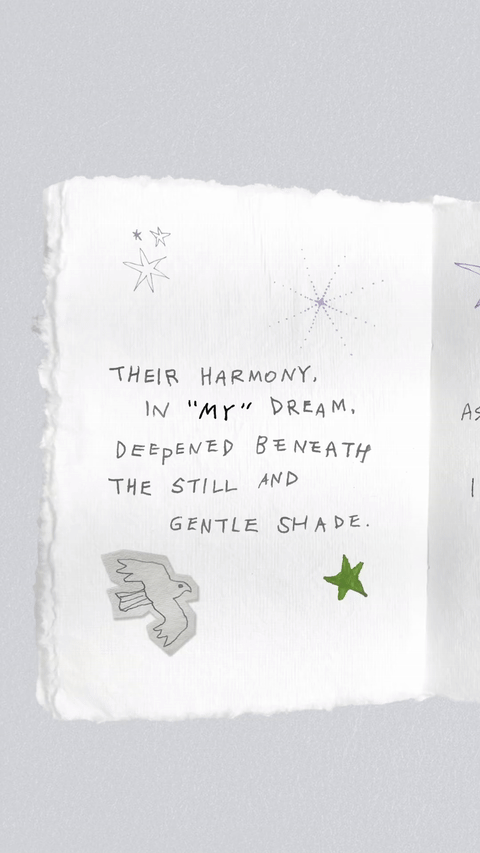 THEIR HARMONY,
IN "MY" DREAM,
DEEPENED BENEATH
THE STILL AND
GENTLE SHADE.
AS
I